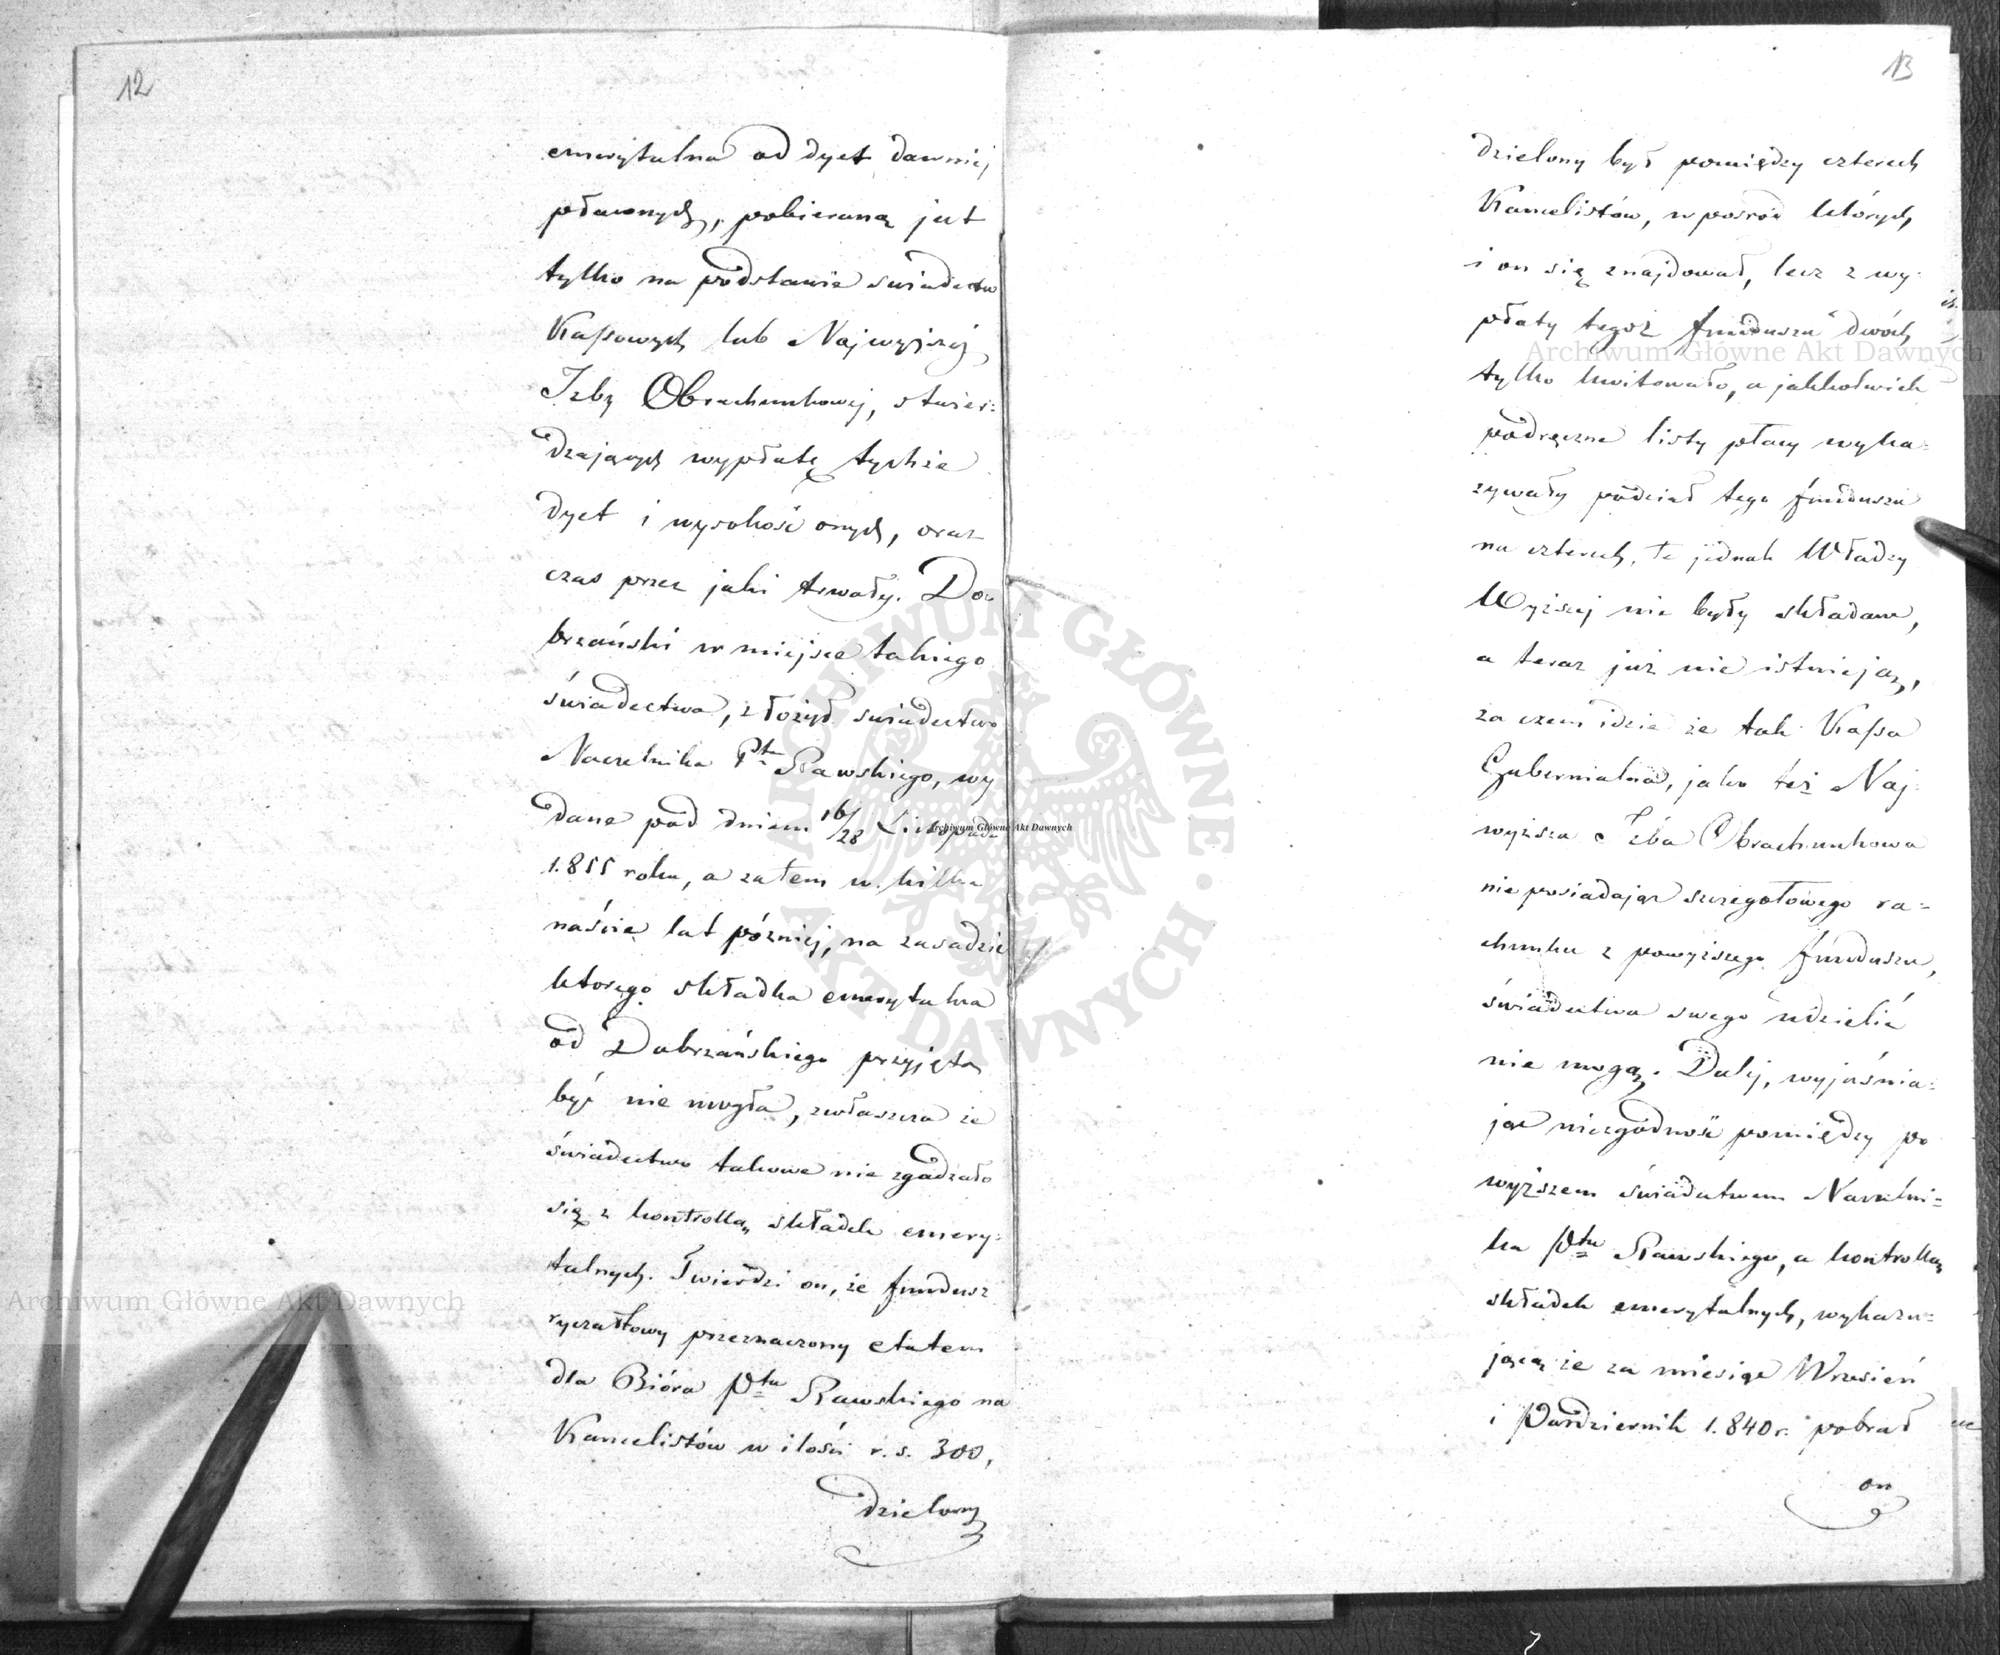 12
emerytalna od dyet dawniej
płaconych, pobieraną jest
tylko na podstawie świadectw
Kassowych lub Najwyższej
Izby Obrachunkowej, stwier=
dzających wypłatę tychże
dyet i wysokość onych, oraz
czas przez jaki trwały. Do=
brzański w miejsce takiego
świadectwa, złożył świadectwo
Naczelnika Ptu Rawskiego, wy
dane pod dniem 16/28 Listopada
1.855 roku, a zatem w kilka
naście lat później, na zasadzie
którego składka emerytalna
od Dobrzańskiego przyjęta
być nie mogła, zwłaszcza że
świadectwo takowe nie zgadzało
się z kontrollą składek emery=
talnych. Twierdzi on, że fundusz
ryczałtowy przeznaczony etatem
dla Bióra Ptu Rawskiego na
Kancelistów w ilości r. s. 300,
dzielony
13
dzielony był pomiędzy czterech
Kancelistów, wpośród których
i on się znajdował, lecz z wy=
płaty tegoż funduszu dwóch
tylko kwitowało, a jakkolwiek
podręczne listy płacy wyka=
zywały podział tego funduszu
na czterech, te jednak Władzy
Wyższej nie były składane,
a teraz już nie istnieją,
za czem idzie że tak Kassa
Gubernialna, jako też Naj=
wyższa Izba Obrachunkowa
nie posiadając szczegółowego ra=
chunku z powyższego funduszu,
świadectwa swego udzielić
nie mogą. Dalej, wyjaśnia=
jąc niezgodność pomiędzy po
wyższem świadectwem Naczelni=
ka Ptu Rawskiego, a kontrollą
składek emerytalnych, wykazu=
jącą że za miesiące Wrzesień
i Październik 1.840 r. pobrał
on
Archiwum Główne Akt Dawnych
Archiwum Główne Akt Dawnych
Archiwum Główne Akt Dawnych
ARCHIWUM GŁÓWNE AKT DAWNYCH